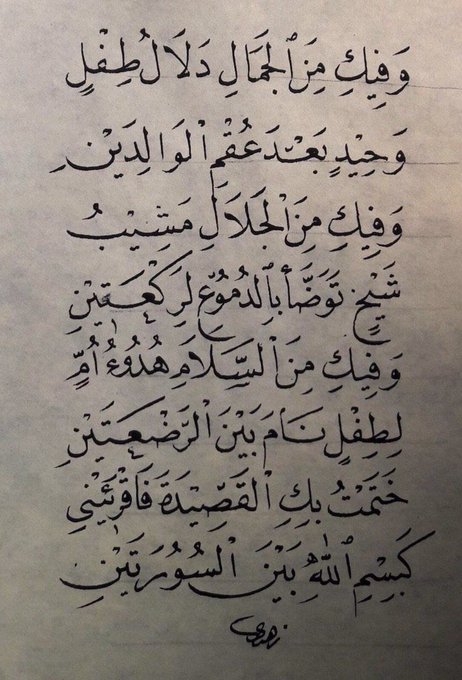 وَفِيكِ مِنَ ٱلْجَمَالِ دَلَالُ طِفْلٍ
وَحِيدٍ بَعْدَ عُقْمِ ٱلْوَالِدَيْنِ
وَفِيكِ مِنَ ٱلْجَلَالِ مَشِيبُ
شَيْخٍ تَوَضَّأَ بِٱلدُّمُوعِ لِرَكْعَتَيْنِ
وَفِيكِ مِنَ ٱلسَّلَامِ هُدُوءُ أُمٍّ
لِطِفْلٍ نَامَ بَيْنَ ٱلرَّضْعَتَيْنِ
خَتَمْتُ بِكِ ٱلْقَصِيدَةَ فَٱقْرَئِينِي
كَبِسْمِ ٱللَّهِ بَيْنَ ٱلسُّورَتَيْنِ